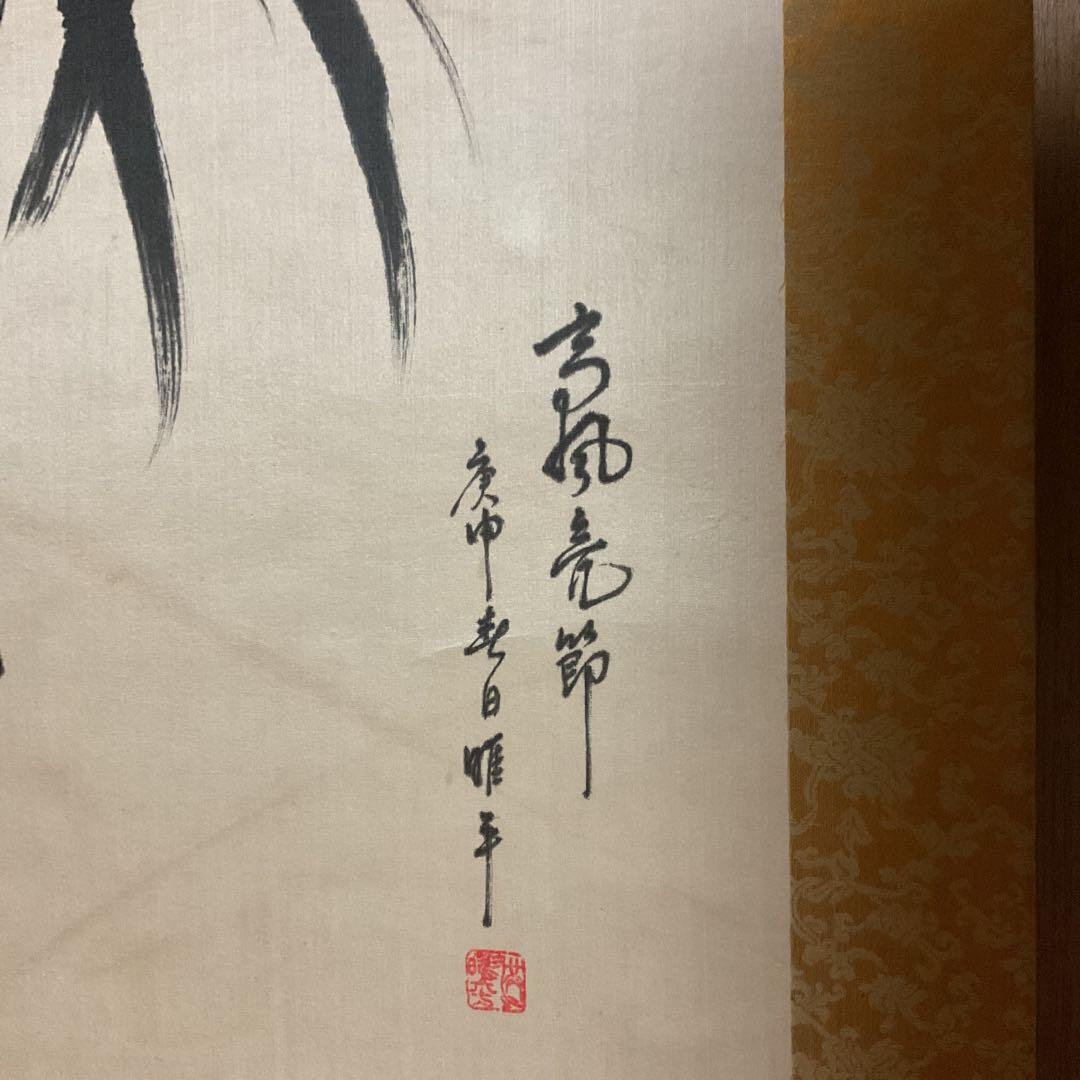 高風亮節
庚申春日睢平